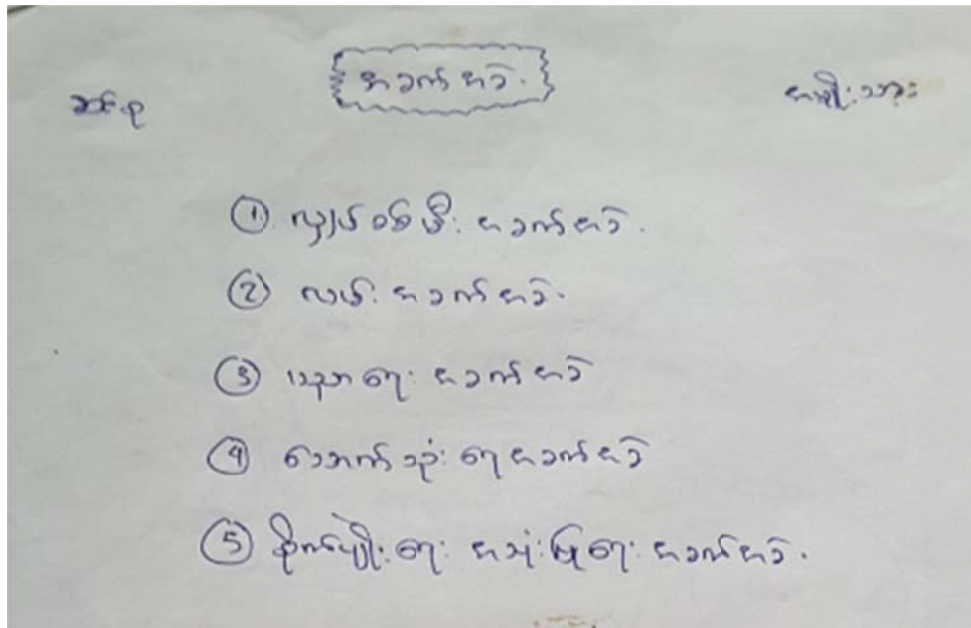 အခက်အခဲ.
ဆင်စု အမျိုးသား
① လျှပ်စစ်မီး အခက်အခဲ.
② လမ်း အခက်အခဲ.
③ ပညာရေး အခက်အခဲ
④ သောက်သုံးရေအခက်အခဲ
⑤ စိုက်ပျိုးရေး အသုံးပြုရေး အခက်အခဲ.